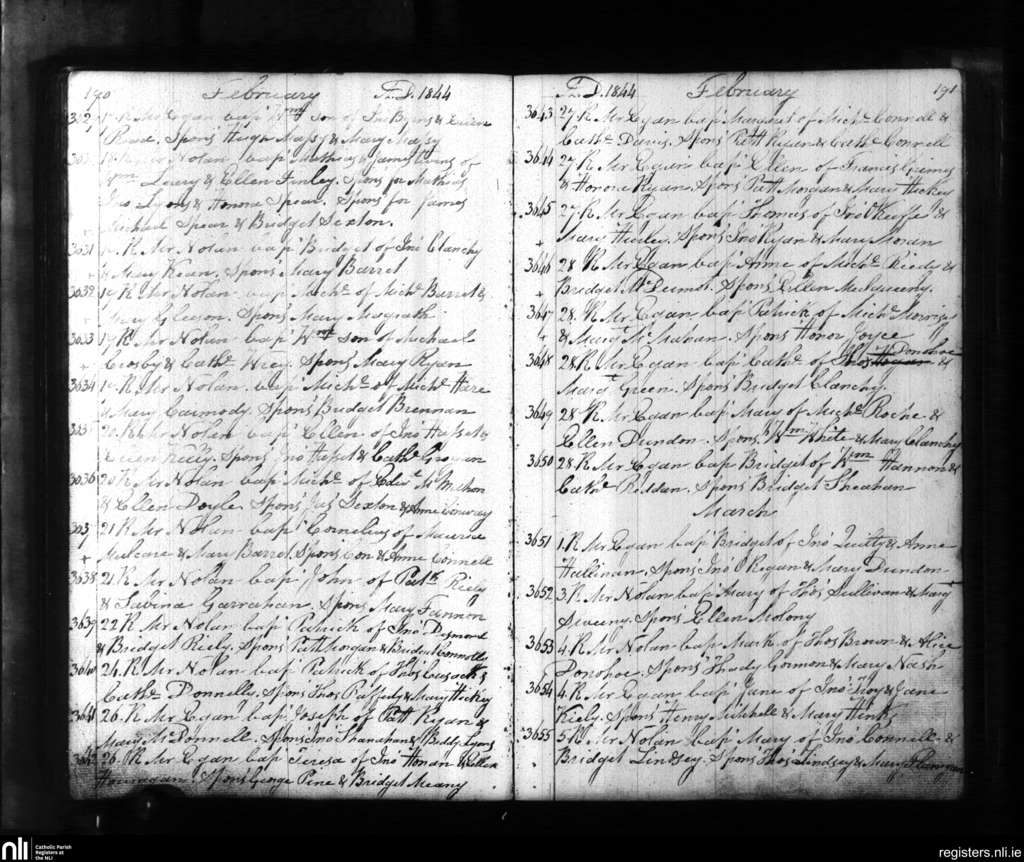 190 February A.D. 1844
Mr Egan bap' Wm son of Jno Byrns &
Spons Hugh Massy & Mary Massy
Nolan bap' Mathias & James twins of
Wm Leary & Ellen Finley. Spons for Mathias
Jno Lyons & Honora Spear. Spons for James
Michael Spear & Bridget Sexton.
3031 R. Mr Nolan bap' Bridget of Jno Clanchy
& Mary Kean. Spons Mary Barret
3032 19 R. Mr Nolan bap' Michl of Michl Barret &
Mary Gleeson. Spons Mary Magrath
3033 19 R. Mr Nolan bap' Wm son of Michael
Crosby & Cathe Wrey. Spons Mary Ryan
3634 19 R. Mr Nolan bap' Michl of Michl Hare
& Mary Carmody. Spons Bridget Brennan
20 R. Mr Nolan bap' Ellen of Jno Hasset &
Ellen Kiely. Spons Jno Hasset & Cathe
3036 20 R. Mr Nolan bap' Michl of Edwd McMahon
& Ellen Doyle. Spons Jas Sexton & Anne Conway
21 R. Mr Nolan bap' Cornelius of Maurice
Mulcare & Mary Barret. Spons Con & Anne Connell
3638 21 R. Mr Nolan bap' John of Patk Kiely
& Sabina Garrahan. Spons Mary Fannon
3639 22 R. Mr Nolan bap' Patrick of Jno Desmond
& Bridget Kiely. Spons Patt Morgan & Bridget Connolly
3640 24 R. Mr Nolan bap' Patrick of Thos Cusack &
Cathe Donnelle. Spons Thos & Mary Hickey
3641 26. R. Mr Egan bap' Joseph of Patt Ryan &
Mary McDonnell. Spons Jno Shanahan & Biddy Lyons
3642 26. R. Mr Egan bap' Teresa of Jno Honan & Ellen
Hourigan. Spons George Pine & Bridget Meany
A.D. 1844 February 191
3643 27 R. Mr Egan bap' Margaret of Michl Connell &
Cathe Davis. Spons Patt Ryan & Cathe Connell
3644 27 R. Mr Egan bap' Ellen of Francis Grimes
& Honora Ryan. Spons Patt Morgan & Mary Hickey
3645 27 R. Mr Egan bap' Thomas of Jno O'Keeffe &
Mary Hurley. Spons Jno Ryan & Mary Moran
3646 28 R. Mr Egan bap' Anne of Michl Riedy &
Bridget McDermot. Spons Ellen McSweeny.
3647 28. R. Mr Egan bap' Patrick of Michl Morrisy
& Margt McMahan. Spons Honor Joyce
3648 28 R. Mr Egan bap' Cathe of Donohoe &
Margt Green. Spons Bridget Clanchy.
3649 28 R. Mr Egan bap' Mary of Michl Roche &
Ellen Dundon. Spons Wm White & Mary Clanchy
3650 28 R. Mr Egan bap' Bridget of Wm Hannon &
Cathe Reddan. Spons Bridget Sheahan
March
3651 1. R. Mr Egan bap' Bridget of Jno Quilty & Anne
Hallinan. Spons Jno O'Regan & Mary Dundon
3652 3. R. Mr Nolan bap' Mary of Thos Sullivan & Margt
Sweeny. Spons Ellen Molony
3653 4 R. Mr Nolan bap' Mark of Thos Brown & Alice
Donohoe. Spons Thady Gorman & Mary Nash
3654 4 R. Mr Egan bap' Jane of Jno Foy & Jane
Kiely. Spons Henry Mitchell & Mary Hinks
3655 5 R. Mr Nolan bap' Mary of Jno Connell &
Bridget Lindsey. Spons Thos Lindsey & Mary Flannan
nli Catholic Parish
Registers at
the NLI
registers.nli.ie